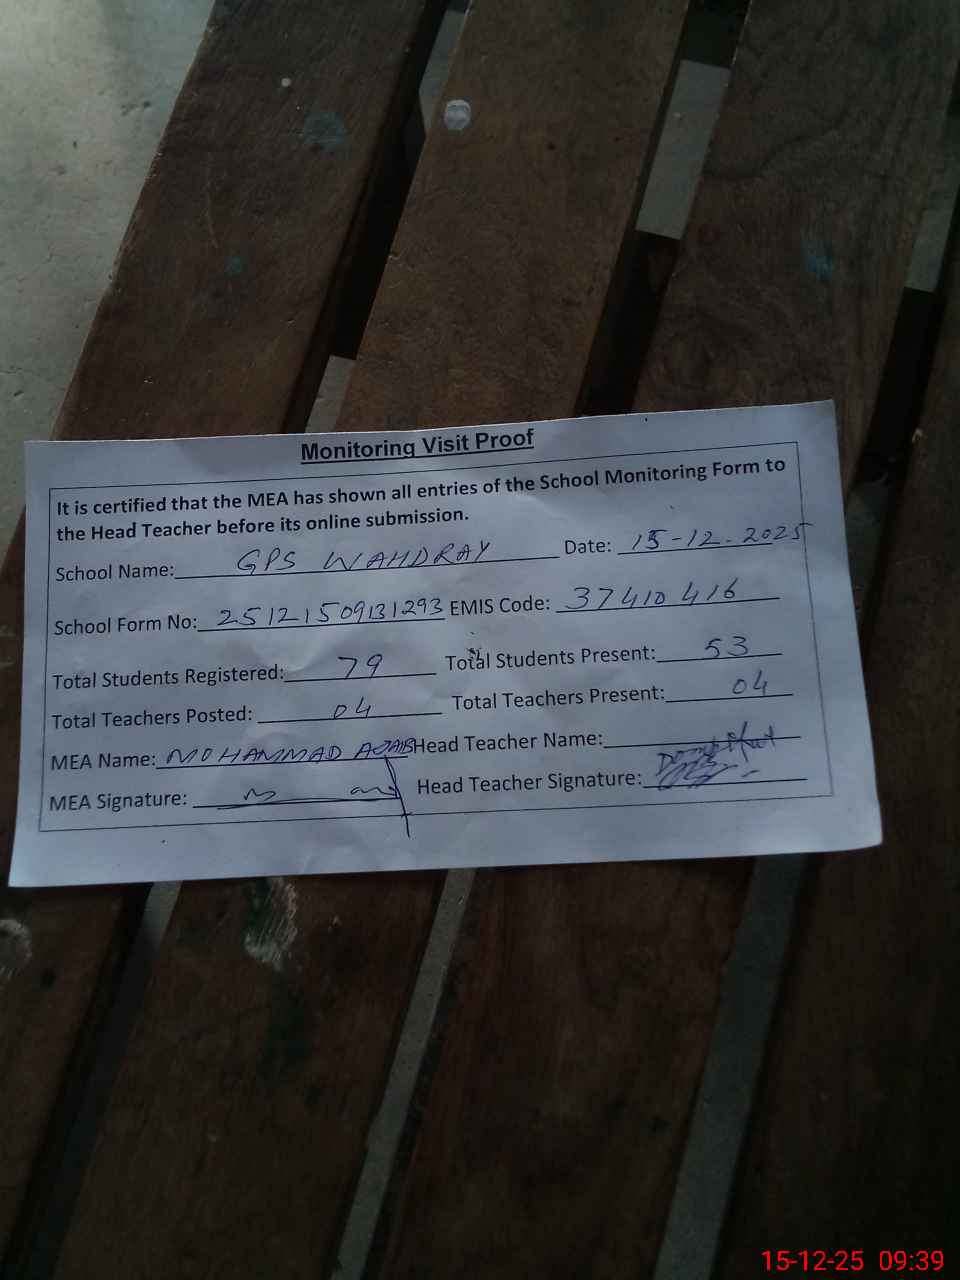 Monitoring Visit Proof
It is certified that the MEA has shown all entries of the School Monitoring Form to
the Head Teacher before its online submission.
School Name: GPS WAHDRAY Date: 15-12-2025
School Form No: 25121509131293 EMIS Code: 37410416
Total Students Registered: 79 Total Students Present: 53
Total Teachers Posted: 04 Total Teachers Present: 04
MEA Name: MOHAMMAD AJAIB Head Teacher Name:
MEA Signature: Head Teacher Signature:
15-12-25 09:39